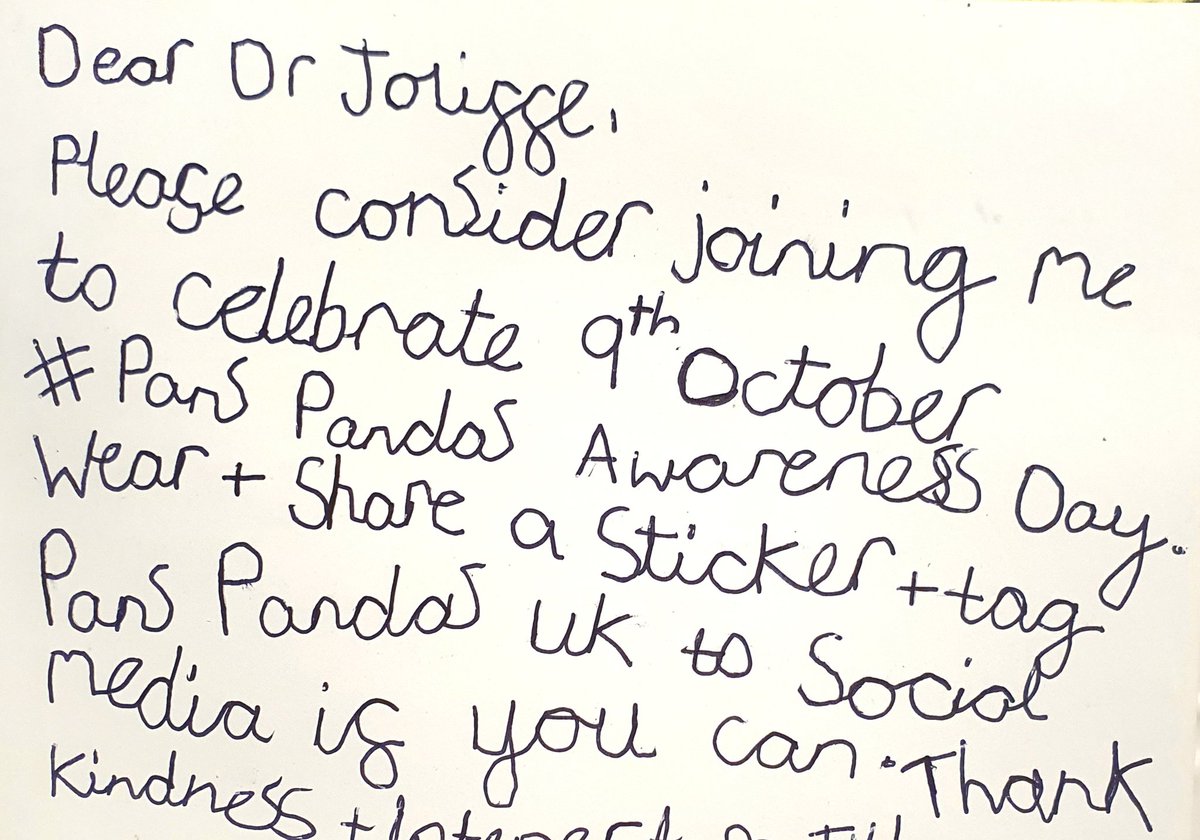 Dear Dr Joliffe,
Please consider joining me
to celebrate 9th October
# Pans Pandas Awareness Day.
Wear + Share a Sticker + tag
Pans Pandas UK to Social
media if you can. Thank
Kindness +